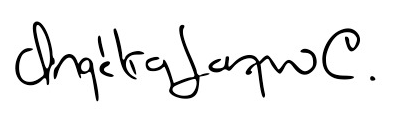 Angélica Lozano C.